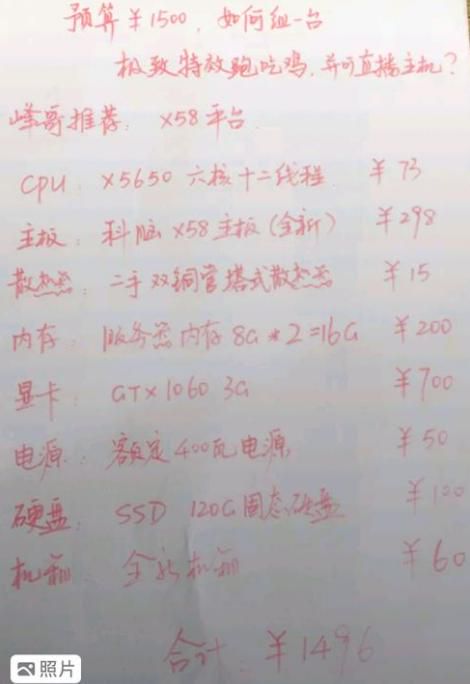 预算￥1500，如何组一台
极致特效跑吃鸡，并可直播主机？
峰哥推荐：X58平台
CPU：X5650 六核十二线程 ￥73
主板：科脑X58主板（全新） ￥298
散热器：二手双铜管塔式散热器 ￥15
内存：服务器内存8G*2=16G ￥200
显卡：GTX1060 3G ￥700
电源：额定400瓦电源 ￥50
硬盘：SSD 120G固态硬盘 ￥100
机箱 全新机箱 ￥60
合计：￥1496
照片